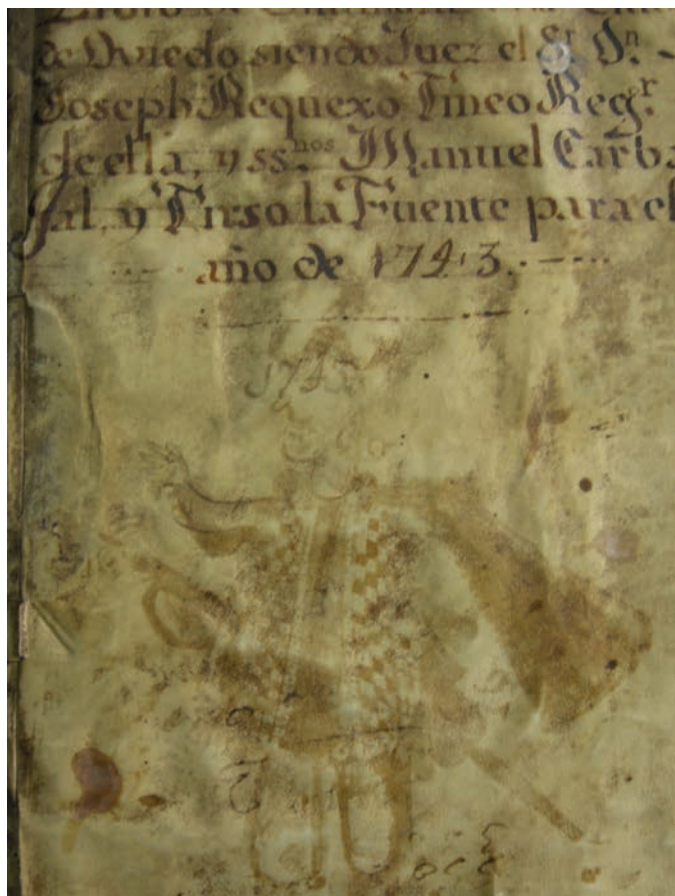 de Oviedo siendo Juez el Sr. Dn.
Joseph Requexo Tineo Regr.
de ella, y ssnos Manuel Carba
jal, y Tirso la Fuente para el
año de 1743.
1743